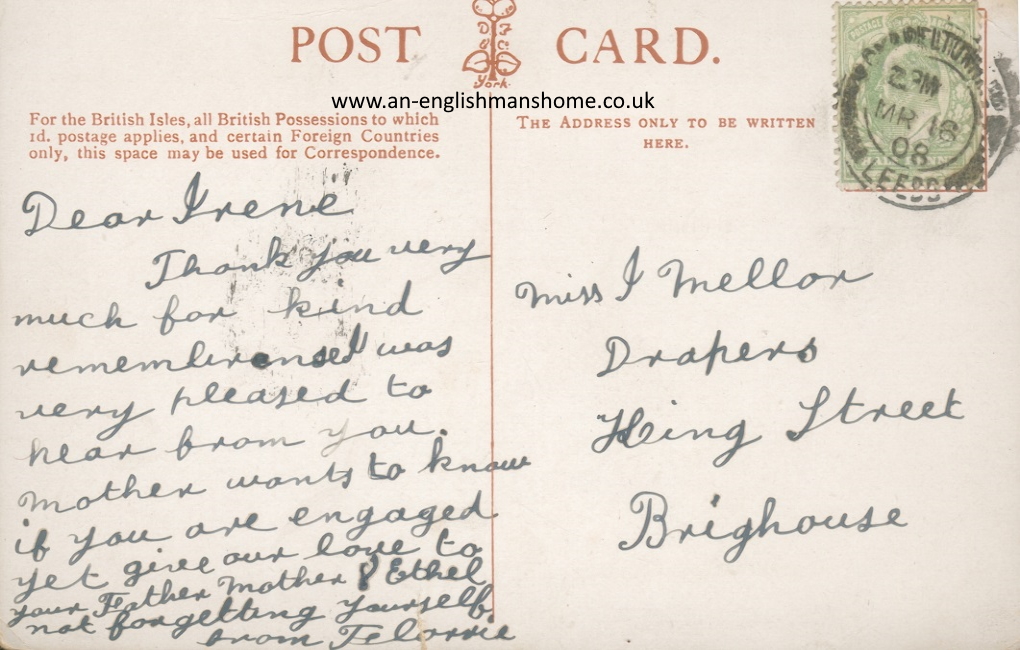 POST CARD.
York
www.an-englishmanshome.co.uk
For the British Isles, all British Possessions to which
1d. postage applies, and certain Foreign Countries
only, this space may be used for Correspondence.
THE ADDRESS ONLY TO BE WRITTEN
HERE.
POSTAGE
2 PM
MR 16
08
LEEDS
Dear Irene
Thank you very
much for kind
I was
very pleased to
hear from you.
Mother wants to know
if you are engaged
yet give our love to
your Father Mother & Ethel
not forgetting yourself.
from Florrie
Miss I Mellor
Drapers
King Street
Brighouse